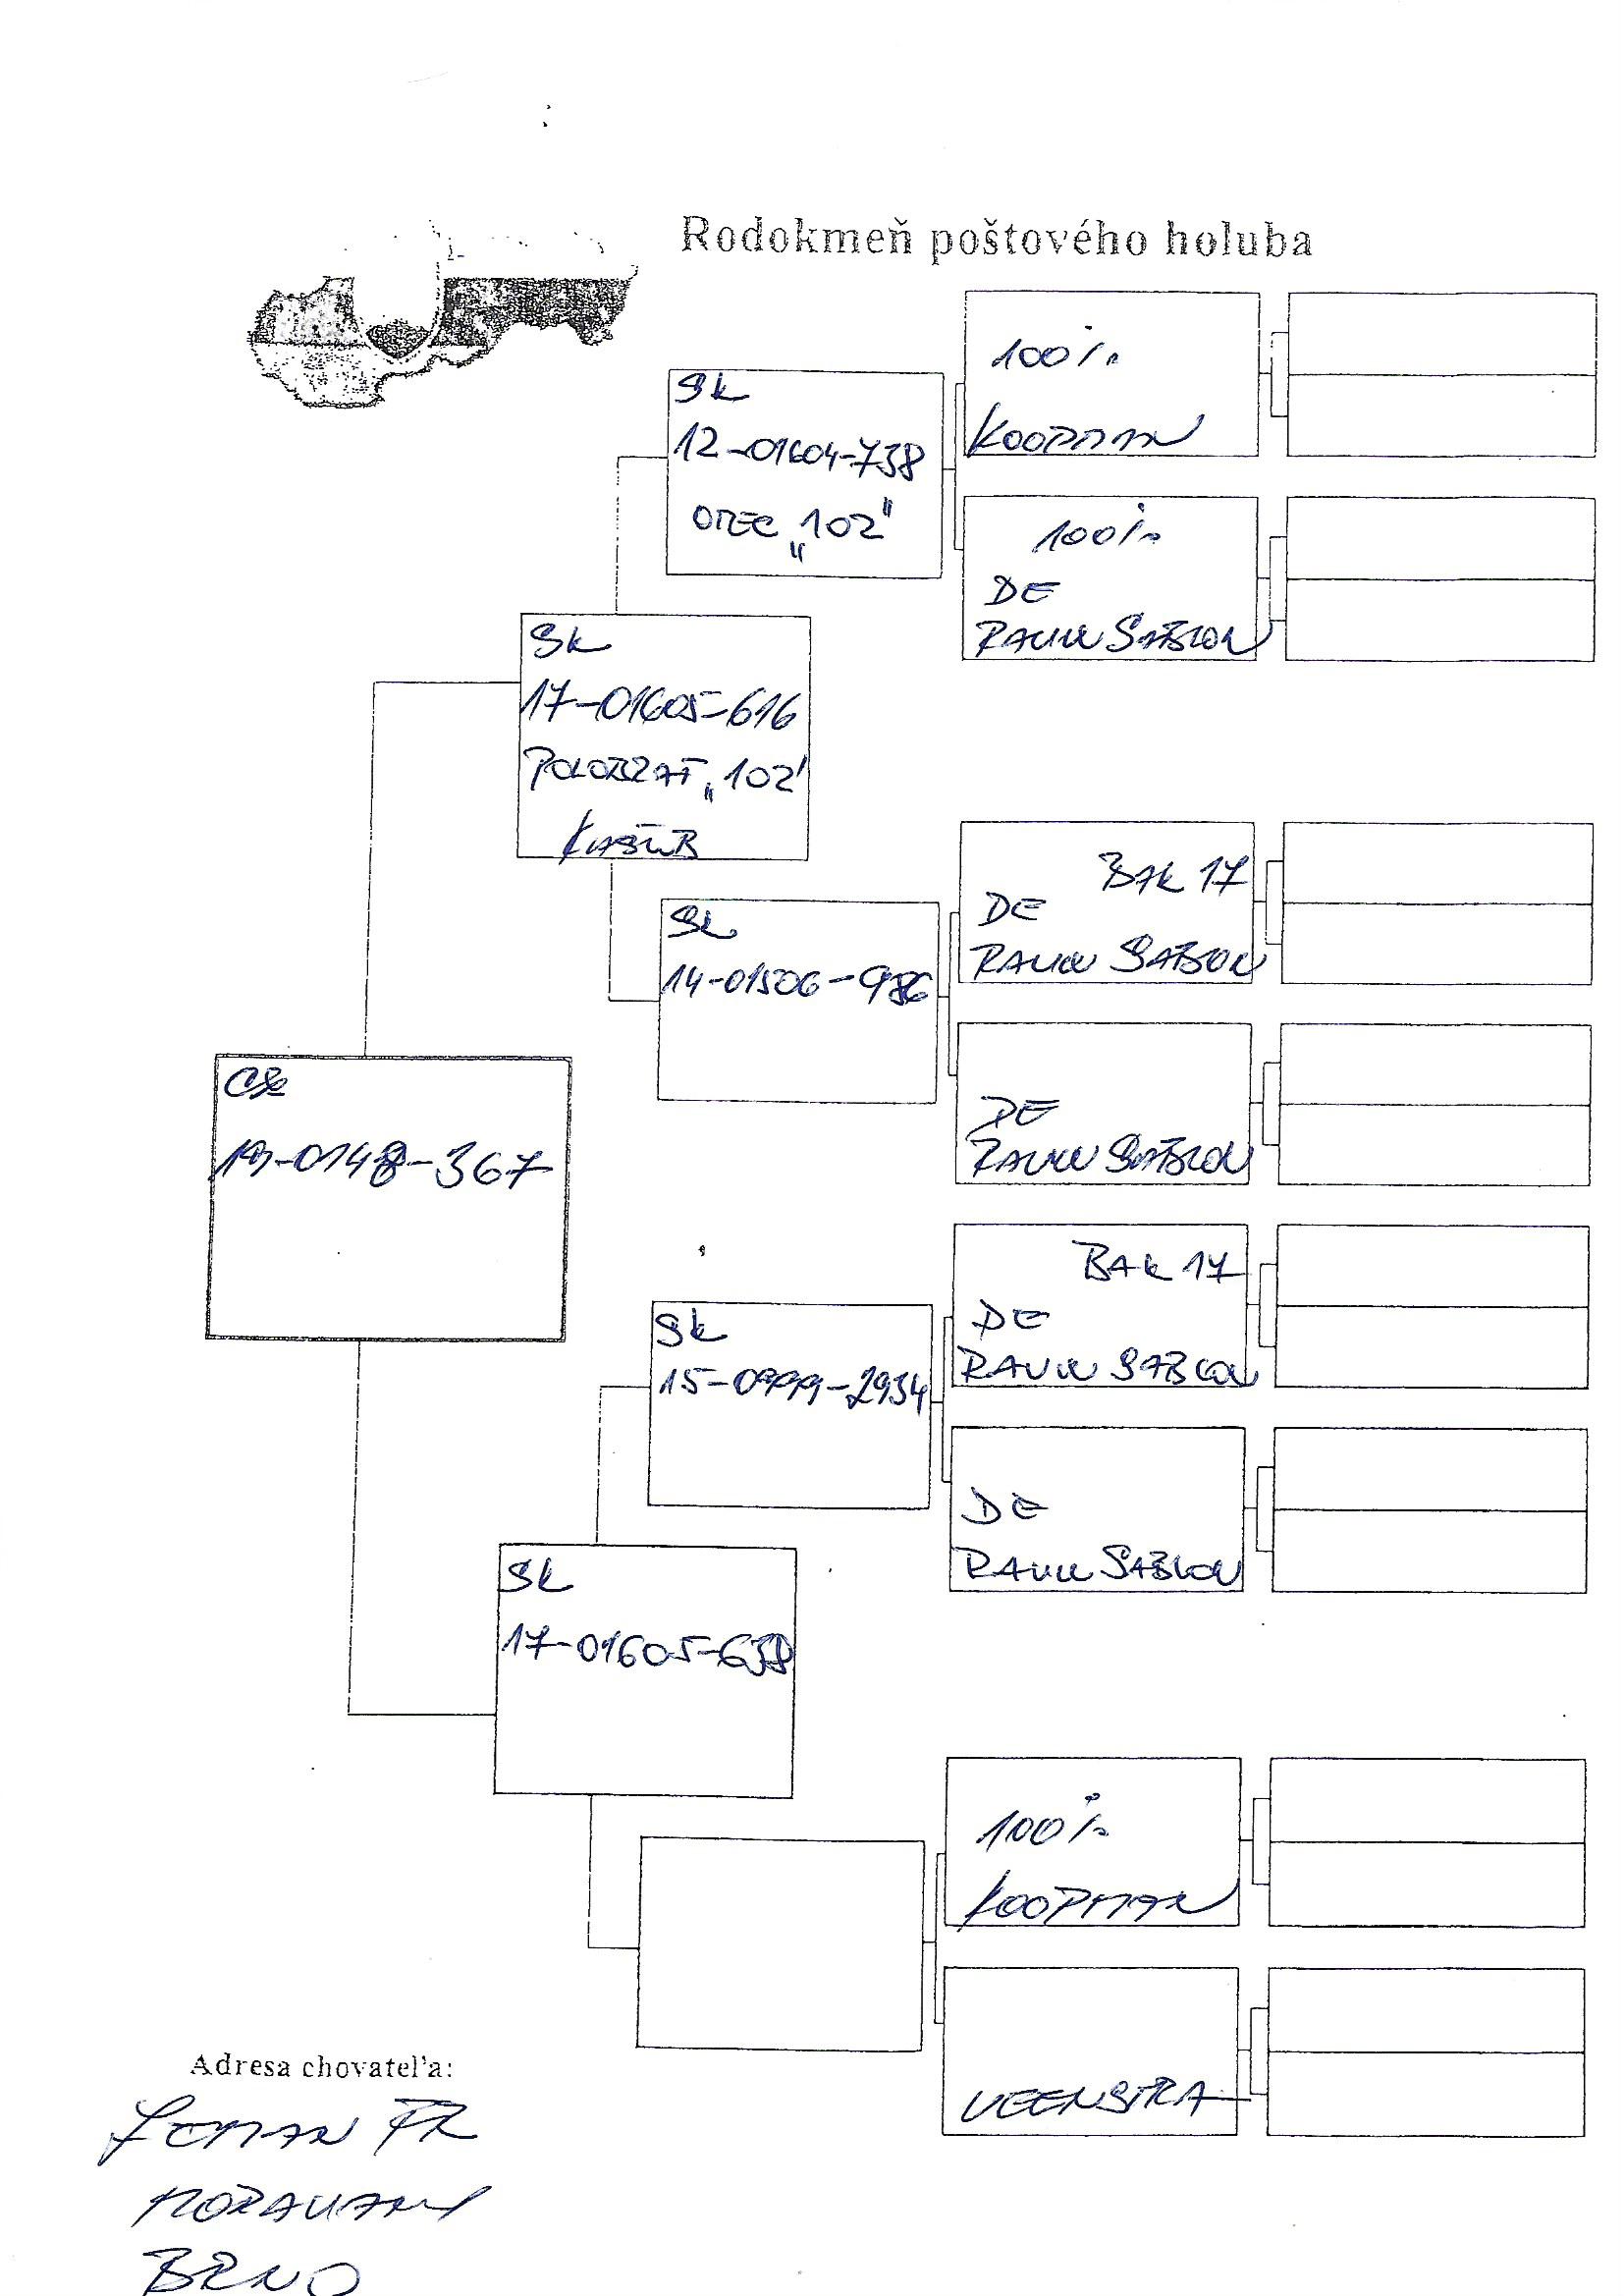 Rodokmeň poštového holuba
SK
12-01604-738
OTEC „102"
100%
KOOPMAN
100%
DE
RAUW SABLON
SK
17-01605-616
POLOBRAT „102"
KAŠUB
SK
14-01506-986
BAK 17
DE
RAUW SABLON
DE
RAUW SABLON
19-0148-367
SK
15-0999-2934
BAK 17
DE
RAUW SABLON
DE
RAUW SABLON
SK
17-01605-638
100%
KOOPMAN
VEENSTRA
Adresa chovateľa:
ZEMAN FR
MORAVANY
BRNO